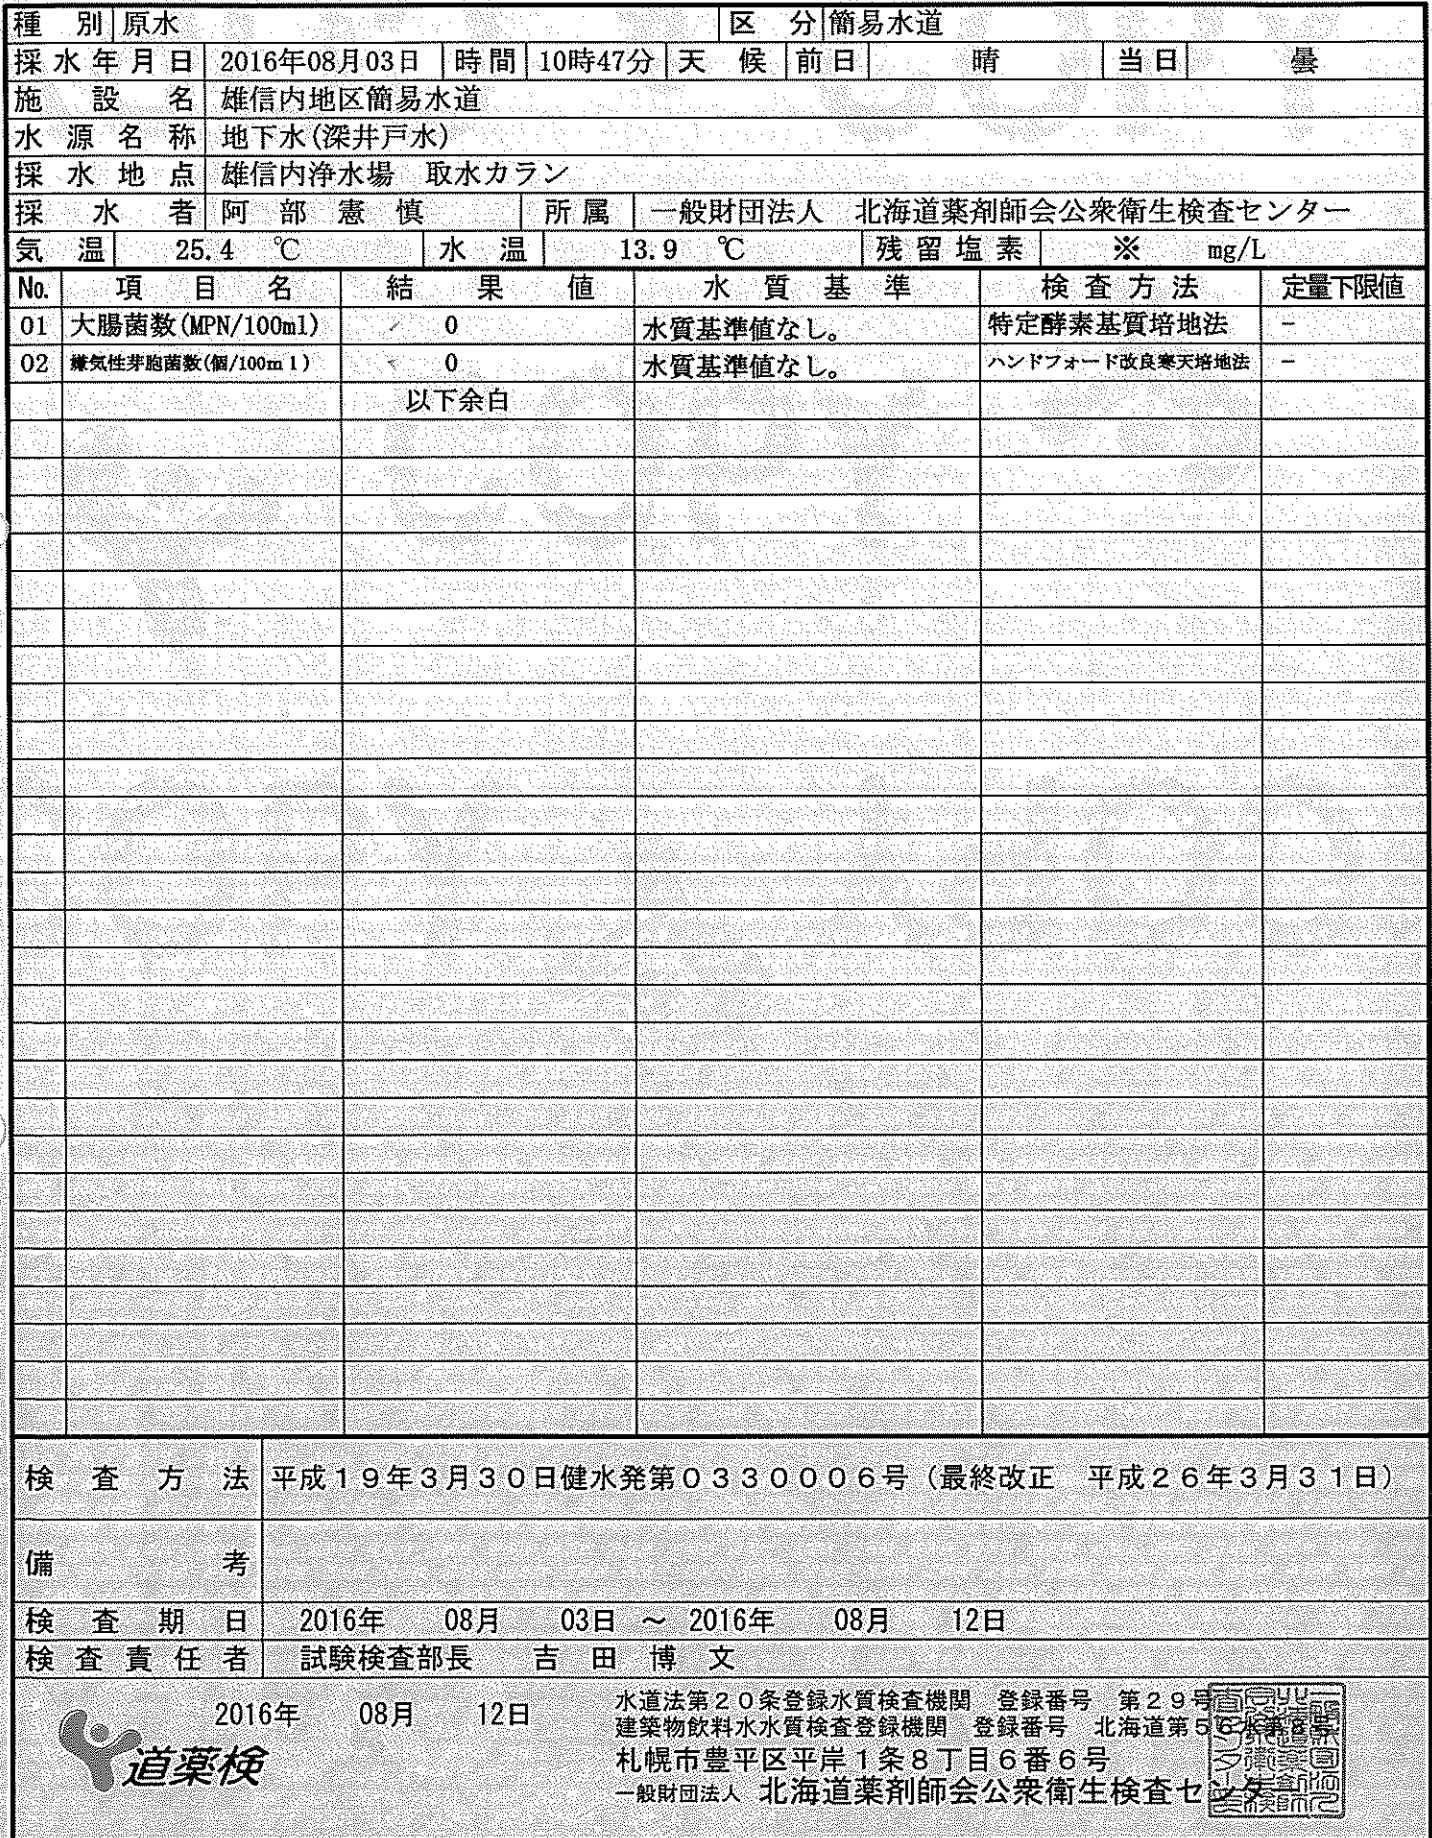 種別 原水 区分 簡易水道
採水年月日 2016年08月03日 時間 10時47分 天候 前日 晴 当日 曇
施設名 雄信内地区簡易水道
水源名称 地下水(深井戸水)
採水地点 雄信内浄水場 取水カラン
採水者 阿部憲慎 所属 一般財団法人 北海道薬剤師会公衆衛生検査センター
気温 25.4 ℃ 水温 13.9 ℃ 残留塩素 ※ mg/L
No. 項目名 結果値 水質基準 検査方法 定量下限値
01 大腸菌数(MPN/100ml) 0 水質基準値なし。 特定酵素基質培地法 −
02 嫌気性芽胞菌数(個/100ml) 0 水質基準値なし。 ハンドフォード改良寒天培地法 −
以下余白
検査方法 平成19年3月30日健水発第0330006号（最終改正 平成26年3月31日）
備考
検査期日 2016年 08月 03日 ～ 2016年 08月 12日
検査責任者 試験検査部長 吉田博文
2016年 08月 12日
道薬検
水道法第20条登録水質検査機関 登録番号 第29号
建築物飲料水水質検査登録機関 登録番号 北海道第56水
札幌市豊平区平岸1条8丁目6番6号
一般財団法人 北海道薬剤師会公衆衛生検査センター